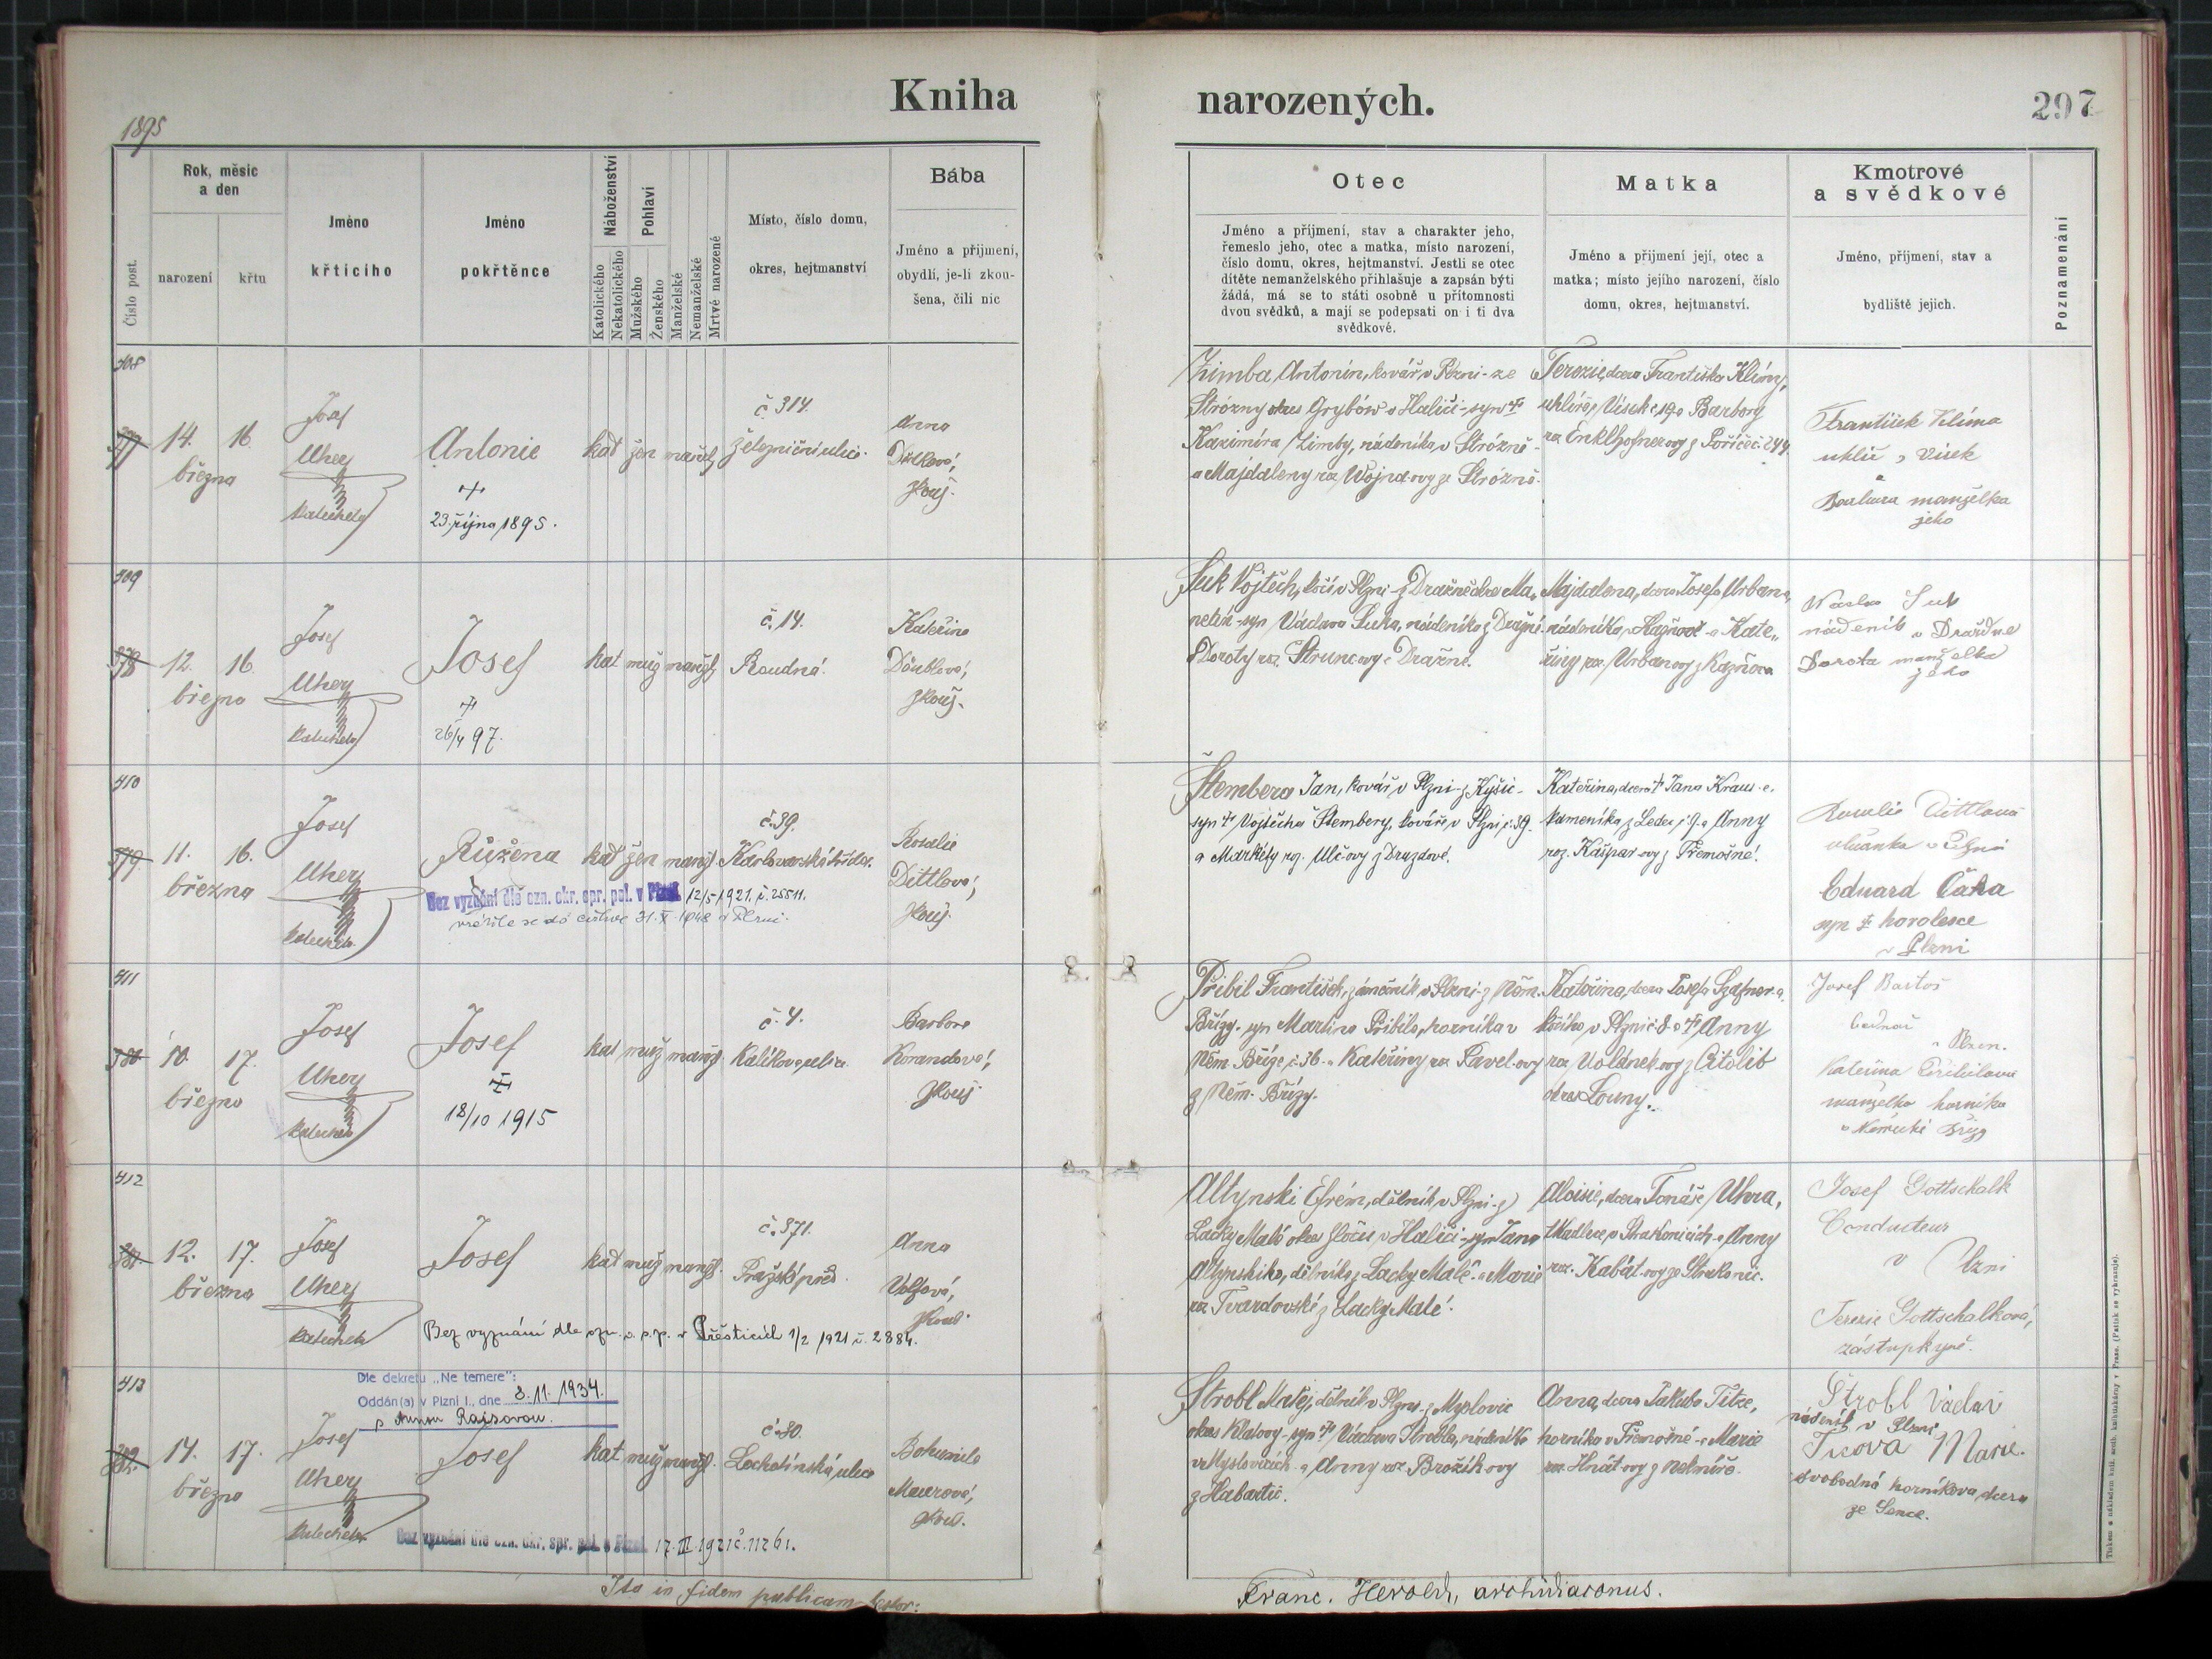 Kniha
narozených.
297
1895
Číslo post.
Rok, měsíc
a den
narození
křtu
Jméno
křtícího
Jméno
pokřtěnce
Náboženství
Katolického
Nekatolického
Pohlaví
Mužského
Ženského
Manželské
Nemanželské
Mrtvé narozené
Místo, číslo domu,
okres, hejtmanství
Bába
Jméno a příjmení,
obydlí, je-li zkou-
šena, čili nic
Otec
Jméno a příjmení, stav a charakter jeho,
řemeslo jeho, otec a matka, místo narození,
číslo domu, okres, hejtmanství. Jestli se otec
dítěte nemanželského přihlašuje a zapsán býti
žádá, má se to státi osobně u přítomnosti
dvou svědků, a mají se podepsati on i ti dva
svědkové.
Matka
Jméno a příjmení její, otec a
matka; místo jejího narození, číslo
domu, okres, hejtmanství.
Kmotrové
a svědkové
Jméno, příjmení, stav a
bydliště jejich.
Poznamenání
408
14. 16.
března
Josef
Uher
katecheta
Antonie
23. října 1895.
kat žen manžel
č. 314.
Železniční ulice.
Anna
zkouš.
Zimba Antonín, kovář v Plzni - ze
Strózny okres Grybów v Haliči - syn †
Kazimíra Zimby, nádeníka v Strózně -
a Majdaleny roz. Wojna-ovy ze Strózně.
Terezie, dcera Františka Klímy,
uhlíře, Vísek č. 19 a Barbory
roz. Enklhofner-ovy z Poříčí č. 244.
František Klíma
uhlíř, Vísek
a
Barbara manželka
jeho
409
12. 16.
března
Josef
Uher
katecheta
Josef
†
26/4 97.
kat muž manžel
č. 14.
Roudná.
Kateřina
Daublová,
zkouš.
Suk Vojtěch, kočí v Plzni - z Dražně okres Ma-
netín - syn Václava Suka, nádeníka z Dražně -
a Doroty roz. Strunc-ovy z Dražně.
Majdalena, dcera Josefa Urbana,
nádeníka v Kaznově - a Kate-
řiny roz. Urban-ovy z Kaznova
Suk
nádeník v Dražně
Dorota manželka
jeho
410
11. 16.
března
Josef
Uher
katecheta
Růžena
kat žen manžel
č. 39.
Karlovarská třída.
Rosalie
Dittlová,
zkouš.
Bez vyznání dle ozn. okr. spr. pol. v Plzni 12/5 1921. č. 25511.
vrátila se do církve 31. X. 1948 v Plzni.
Štembera Jan, kovář v Plzni - z Kyšic -
syn † Vojtěcha Štembery, kováře v Plzni č. 39.
a Markéty roz. Ulč-ovy z Druzdové.
Kateřina, dcera † Jana Krause,
kameníka z Ledec č. 9. a Anny
roz. Kašpar-ovy z Třemošné.
Rosalie Dittlová
v Plzni
Eduard Čaka
syn † horolesce
v Plzni
411
10. 17.
března
Josef
Uher
katecheta
Josef
18/10 1915
kat muž manžel
č. 4.
Kalikova ulice
Barbora
Korandová,
zkouš.
Přibil František, zámečník v Plzni - z Něm.
Břízy - syn Martina Přibila, horníka v
Něm. Bříze č. 36 - a Kateřiny roz. Pavel-ovy
z Něm. Břízy.
kočího v Plzni č. 8 a † Anny
roz. Voldánek-ovy z Citolib
okres Louny.
Josef Bartoš
bednář
v Plzni.
Kateřina Přibilová
manželka horníka
v Německé Bříze
412
12. 17.
března
Josef
Uher
katecheta
Josef
kat muž manžel.
č. 371.
Pražské před.
Anna
Volfová,
zkouš.
Bez vyznání dle ozn. o. s. p. v Přešticích 1/2 1921 č. 2884.
Altynski Efrém, dělník v Plzni - z
Lacky Malé okres Zločov v Haliči - syn Jana
Altynskiho, dělníka z Lacky Malé - a Marie
roz. Tvardovské z Lacky Malé.
Aloisie, dcera Tomáše Uhra,
tkadlce v Strakonicích - a Anny
roz. Kabát-ovy ze Strakonic.
Josef Gottschalk
Conducteur
v Plzni
Terezie Gottschalková,
zástupkyně.
413
Dle dekretu „Ne temere":
Oddán(a) v Plzni I., dne 3. 11. 1934.
s Annou Rajsovou.
14. 17.
března
Josef
Uher
katecheta
Josef
kat muž manžel.
č. 30.
Lochotínská ulice
Bohumila
Maurová,
zkouš.
Bez vyznání dle ozn. okr. spr. pol. v Plzni 17. III. 1921 č. 11261.
Strobl Matěj, dělník v Plzni - z Myslovic
okres Klatovy - syn † Václava Strobla, nádeníka
v Myslovicích - a Anny roz. Brožík-ovy
z Habartic.
Anna, dcera Jakuba Titze,
horníka v Třemošné - a Marie
roz. Hnát-ovy z Nekmíře.
Štrobl Václav
nádeník v Plzni
Ticova Marie.
svobodná horníkova dcera
ze Sence.
Ita in fidem publicam testor:
Franc. Herold, archidiaconus.